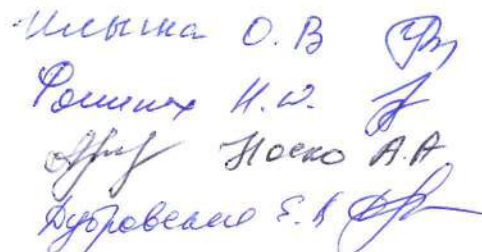 Ильина О.В
Фоминых Н.Ю.
Носко А.А
Дубровская Е.В